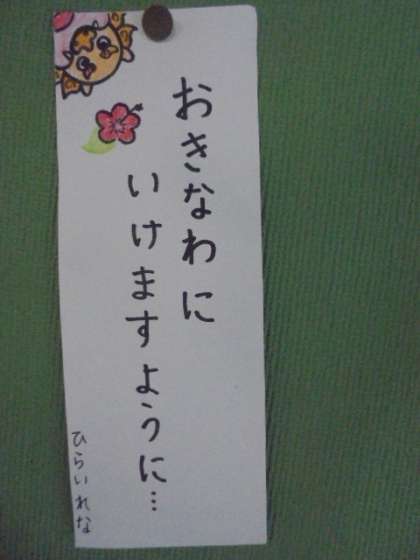 おきなわに
いけますように…
ひらいれな